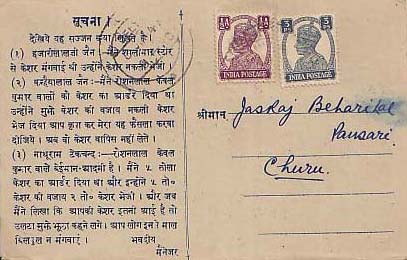 सूचना ।
देखिये यह सज्जन क्या लिखते हैं
(१) हजारीलालजी जैन— मैंने शालीमार स्टोर
से केशर मंगवाई थी उन्होंने नकली भेजी ।
(२) कन्हैयालाल जैन:— मैंने रोशनलाल केवल
कुमार वालों को केशर का आर्डर दिया था
उन्होंने मुझे केशर की वजाय नकली केशर
भेज दिया आप कृपा कर मेरा यह फैसला करवा
दीजिये । अब वो केशर वापिस नहीं लेते ।
(३) नाथूराम टेकचन्द:— रोशनलाल केवल
कुमार वाले बेईमान-आदमी है । मैंने ५ तोला
केशर का आर्डर दिया था और इन्होंने ५ तो०
केशर की वजाय २ तो० केशर भेजी । और जब
मैंने लिखा कि आपकी केशर इतनी आई है तो
उलटा मुझे झूठा कहने लगे । आप लोग इनसे माल
बिलकुल न मंगवाएं । भवदीय
मैनेजर
½A ½A
INDIA POSTAGE
3 PS 3 PS
INDIA POSTAGE
श्रीमान् Jaskaj Beharilal
Pansari
Churu.